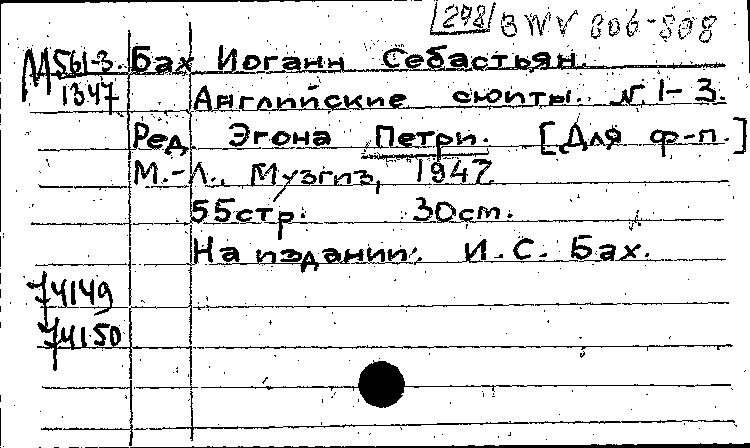 298 BWV 806-808
М561-3. Бах Иоганн Себастьян.
1347 Английские сюиты. N. 1-3.
Ред. Эгона Петри. [Для ф-п.]
М.-Л., Музгиз, 1947
55стр. 30см.
На издании: И.С. Бах.
74149
74150